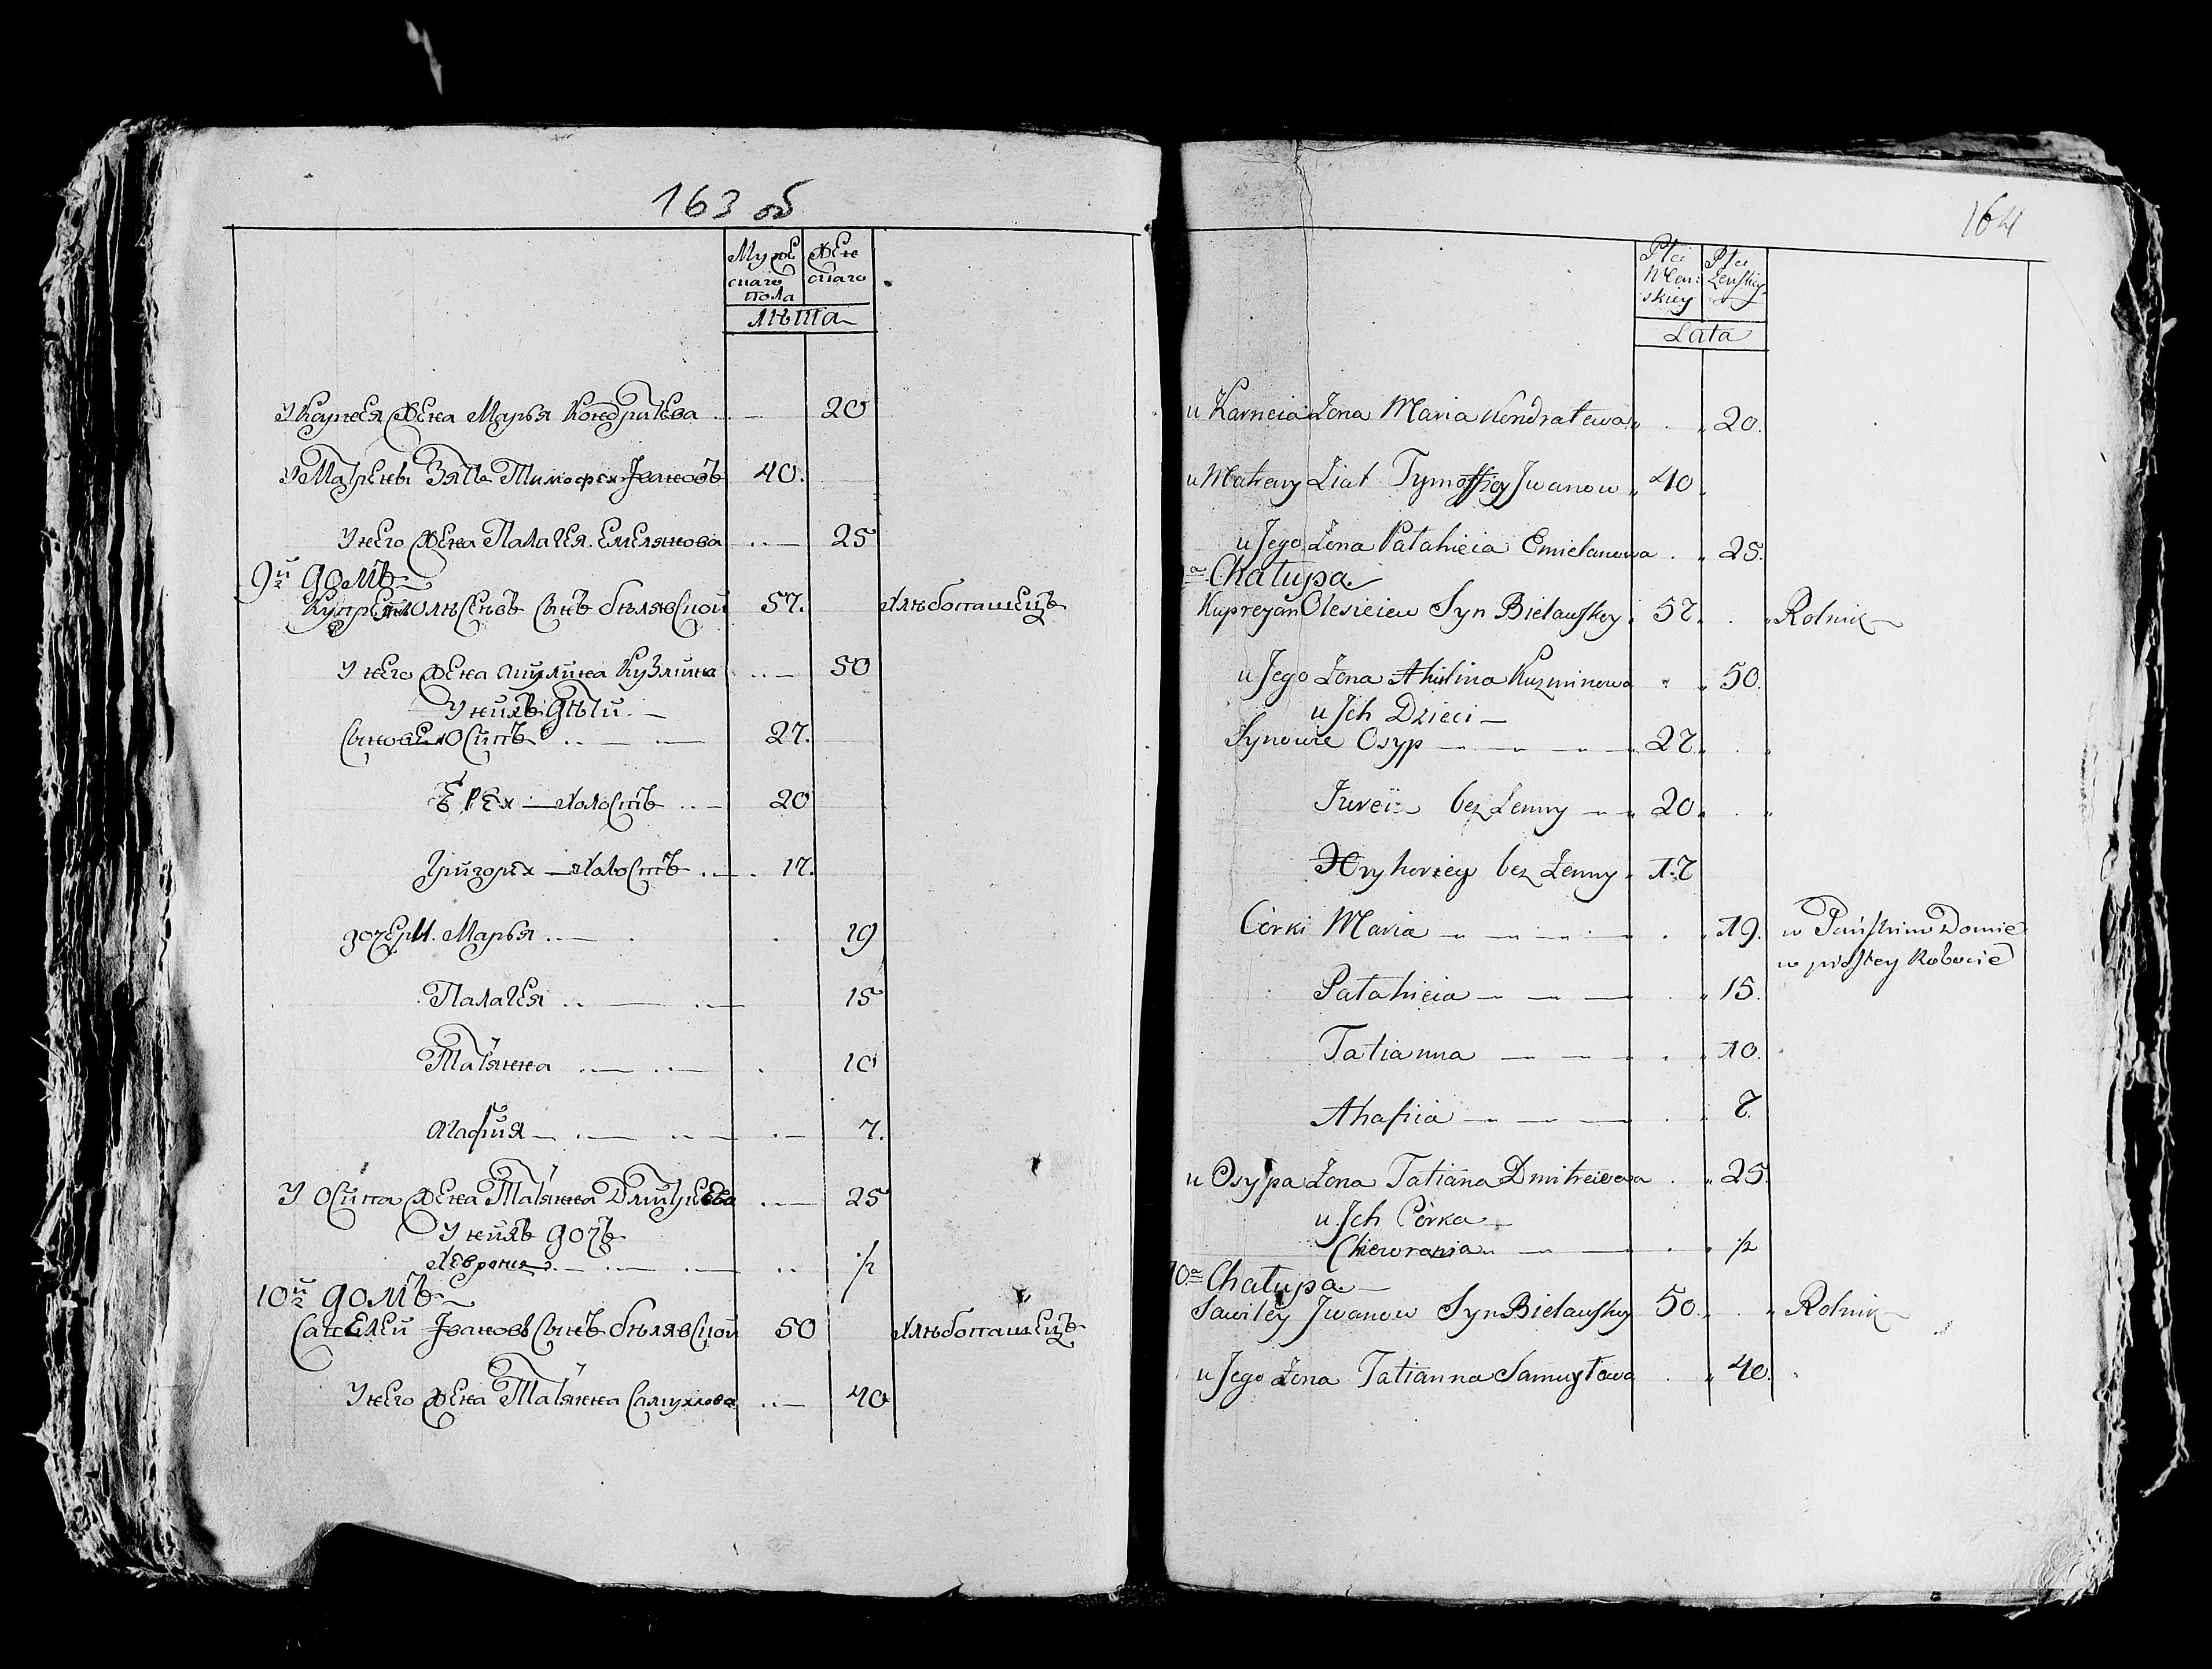 163 об
Муже Жен
скаго скаго
пола
Лѣта
У Карнея Жена Марья Кондратьева 20
У Матрены Зять Тимофей Ивановъ 40.
У него Жена Палагея Емельянова 25
9й домъ
Купреянъ Олѣсѣевъ Сынъ Бѣлявской 57. Хлѣбопашецъ
У него Жена Акулина Кузмина 50
У нихъ дѣти
Сыновья Осипъ 27.
Юрей холостъ 20
Григорей холостъ 17.
дочери Марья 19
Палагея 15
Татьяна 10
Агафия 7.
У Осипа Жена Татьяна Дмитриева 25
У нихъ дочь
Хевронья 1/2
10й домъ
Савелей Ивановъ Сынъ Бѣлявской 50 Хлѣбопашецъ
У него Жена Татьяна Самуйлова 40
164
Płci Płci
Męz: Żeńskiey
skiey
Lata
u Karneia Żona Maria Kondratewa 20.
u Matreny Ziat Tymoffiey Jwanow 40
u Jego Żona Pałahieia Emielanowa 25.
Chałupa
Kupreyan Olesieiew Syn Bielawskey 57 Rolnik
u Jego Żona Akilina Kuzminowa 50.
u Jch Dzieci
Synowie Osyp 27
Jureii bez Żenny 20
Hryhoriey bez Żenny 17
Córki Maria 19. w Pańskim Domie
w prostey Robocie
Pałahieia 15.
Tatianna 10.
Ahafiia 7
u Osypa Żona Tatiana Dmitreiewa 25.
u Jch Córka
Chiewronia 1/2
10a Chałupa
Sawiley Jwanow Syn Bielawskey 50 Rolnik
u Jego Żona Tatianna Samuyłowa 40.